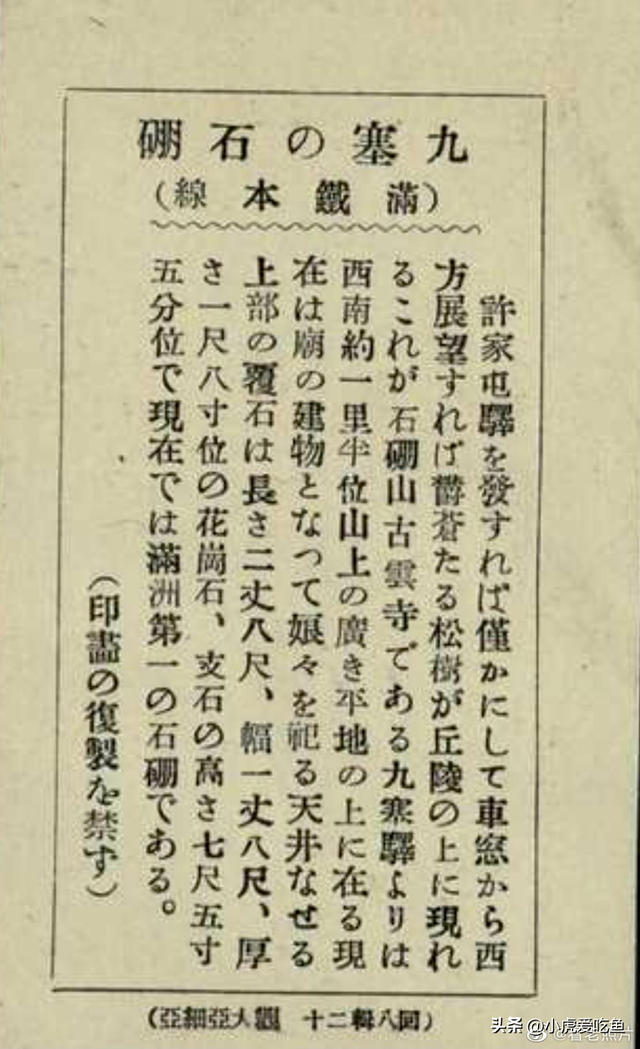 九塞の石硼
(滿鐵本線)
許家屯驛を發すれば僅かにして車窓から西
方展望すれば欝蒼たる松樹が丘陵の上に現れ
るこれが石硼山古雲寺である九塞驛よりは
西南約一里半位山上の廣き平地の上に在る現
在は廟の建物となつて娘々を祀る天井なせる
上部の覆石は長さ二丈八尺、幅一丈八尺、厚
さ一尺八寸位の花崗石、支石の高さ七尺五寸
五分位で現在では滿洲第一の石硼である。
(印畵の復製を禁ず)
(亞細亞大觀 十二輯八回)
头条 @小虎爱吃鱼
@看老照片